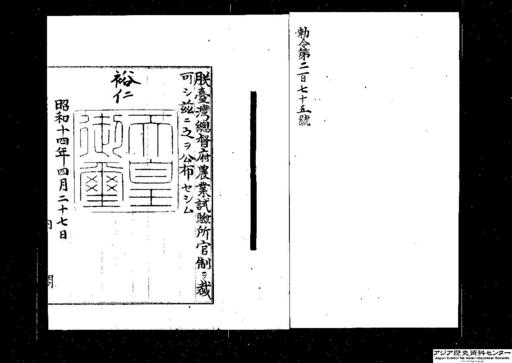 勅令第二百七十五號
朕臺灣總督府農業試驗所官制ヲ裁
可シ茲ニ之ヲ公布セシム
裕仁
天皇
御璽
昭和十四年四月二十七日
内閣
アジア歴史資料センター
Japan Center for Asian Historical Records